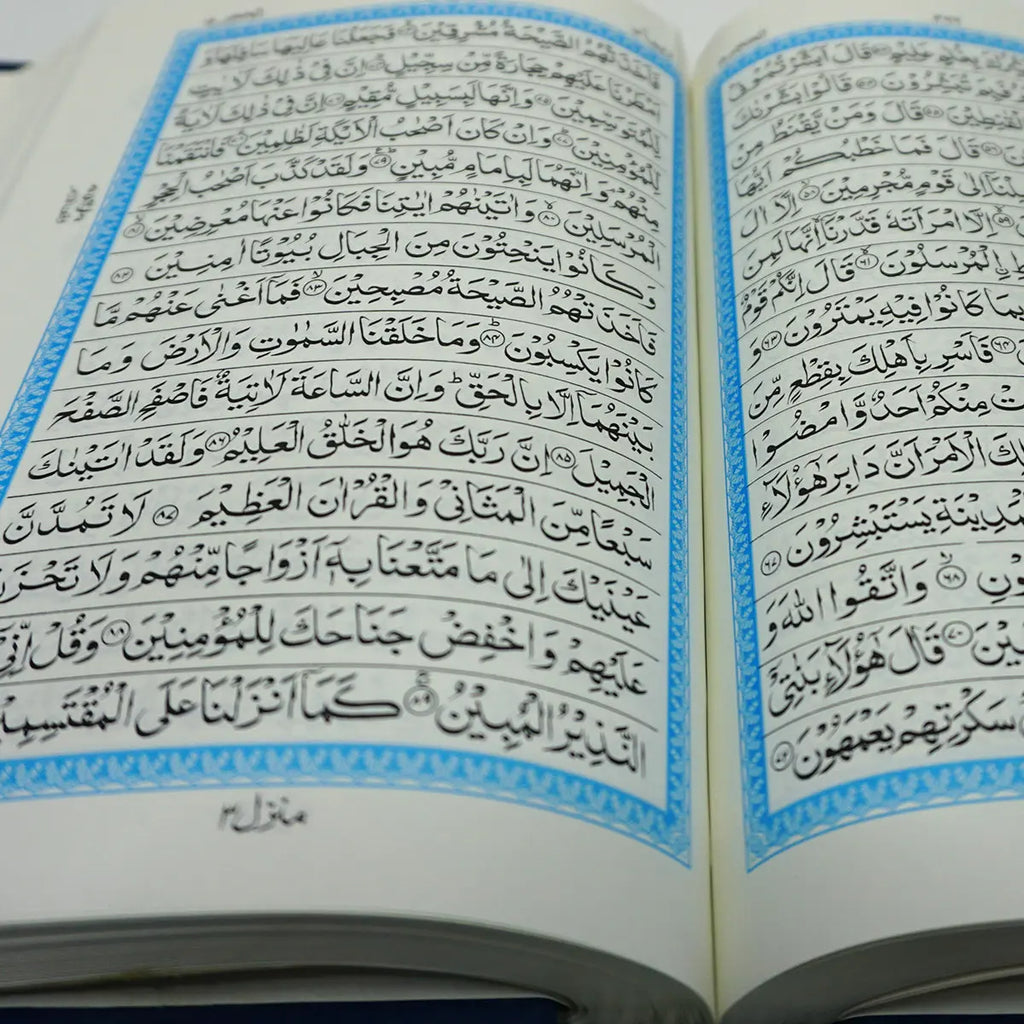 قَالَ اَبَشَّرْتُمُوْنِيْ
فَبِمَ تُبَشِّرُوْنَ ۵۴ قَالُوْا بَشَّرْنٰكَ
الْقٰنِطِيْنَ ۵۵ قَالَ وَمَنْ يَّقْنَطُ مِنْ
۵۶ قَالَ فَمَا خَطْبُكُمْ اَيُّهَا
اِلٰى قَوْمٍ مُّجْرِمِيْنَ ۵۸ اِلَّاۤ اٰلَ
۵۹ اِلَّا امْرَاَتَهٗ قَدَّرْنَاۤ اِنَّهَا لَمِنَ
الْمُرْسَلُوْنَ ۶۱ قَالَ اِنَّكُمْ قَوْمٌ
بِمَا كَانُوْا فِيْهِ يَمْتَرُوْنَ ۶۳ وَ
۶۴ فَاَسْرِ بِاَهْلِكَ بِقِطْعٍ مِّنَ
مِنْكُمْ اَحَدٌ وَّامْضُوْا
الْاَمْرَ اَنَّ دَابِرَ هٰۤؤُلَآءِ
يَسْتَبْشِرُوْنَ ۶۷
۶۸ وَاتَّقُوا اللّٰهَ وَ
۷۰ قَالَ هٰۤؤُلَآءِ بَنٰتِيْۤ
سَكْرَتِهِمْ يَعْمَهُوْنَ ۷۲
فَاَخَذَتْهُمُ الصَّيْحَةُ مُشْرِقِيْنَ ۷۳ فَجَعَلْنَا عَالِيَهَا سَافِلَهَا وَ
اَمْطَرْنَا عَلَيْهِمْ حِجَارَةً مِّنْ سِجِّيْلٍ ۷۴ اِنَّ فِيْ ذٰلِكَ لَاٰيٰتٍ
لِّلْمُتَوَسِّمِيْنَ ۷۵ وَاِنَّهَا لَبِسَبِيْلٍ مُّقِيْمٍ ۷۶ اِنَّ فِيْ ذٰلِكَ لَاٰيَةً
لِّلْمُؤْمِنِيْنَ ۷۷ وَاِنْ كَانَ اَصْحٰبُ الْاَيْكَةِ لَظٰلِمِيْنَ ۷۸ فَانْتَقَمْنَا
مِنْهُمْ وَاِنَّهُمَا لَبِاِمَامٍ مُّبِيْنٍ ۷۹ وَلَقَدْ كَذَّبَ اَصْحٰبُ الْحِجْرِ
الْمُرْسَلِيْنَ ۸۰ وَاٰتَيْنٰهُمْ اٰيٰتِنَا فَكَانُوْا عَنْهَا مُعْرِضِيْنَ ۸۱
وَكَانُوْا يَنْحِتُوْنَ مِنَ الْجِبَالِ بُيُوْتًا اٰمِنِيْنَ ۸۲
فَاَخَذَتْهُمُ الصَّيْحَةُ مُصْبِحِيْنَ ۸۳ فَمَاۤ اَغْنٰى عَنْهُمْ مَّا
كَانُوْا يَكْسِبُوْنَ ۸۴ وَمَا خَلَقْنَا السَّمٰوٰتِ وَالْاَرْضَ وَمَا
بَيْنَهُمَاۤ اِلَّا بِالْحَقِّ ؕ وَاِنَّ السَّاعَةَ لَاٰتِيَةٌ فَاصْفَحِ الصَّفْحَ
الْجَمِيْلَ ۸۵ اِنَّ رَبَّكَ هُوَ الْخَلّٰقُ الْعَلِيْمُ ۸۶ وَلَقَدْ اٰتَيْنٰكَ
سَبْعًا مِّنَ الْمَثَانِيْ وَالْقُرْاٰنَ الْعَظِيْمَ ۸۷ لَا تَمُدَّنَّ
عَيْنَيْكَ اِلٰى مَا مَتَّعْنَا بِهٖۤ اَزْوَاجًا مِّنْهُمْ وَلَا تَحْزَنْ
عَلَيْهِمْ وَاخْفِضْ جَنَاحَكَ لِلْمُؤْمِنِيْنَ ۸۸ وَقُلْ اِنِّيْۤ
النَّذِيْرُ الْمُبِيْنُ ۸۹ كَمَاۤ اَنْزَلْنَا عَلَى الْمُقْتَسِمِيْنَ
منزل ۳